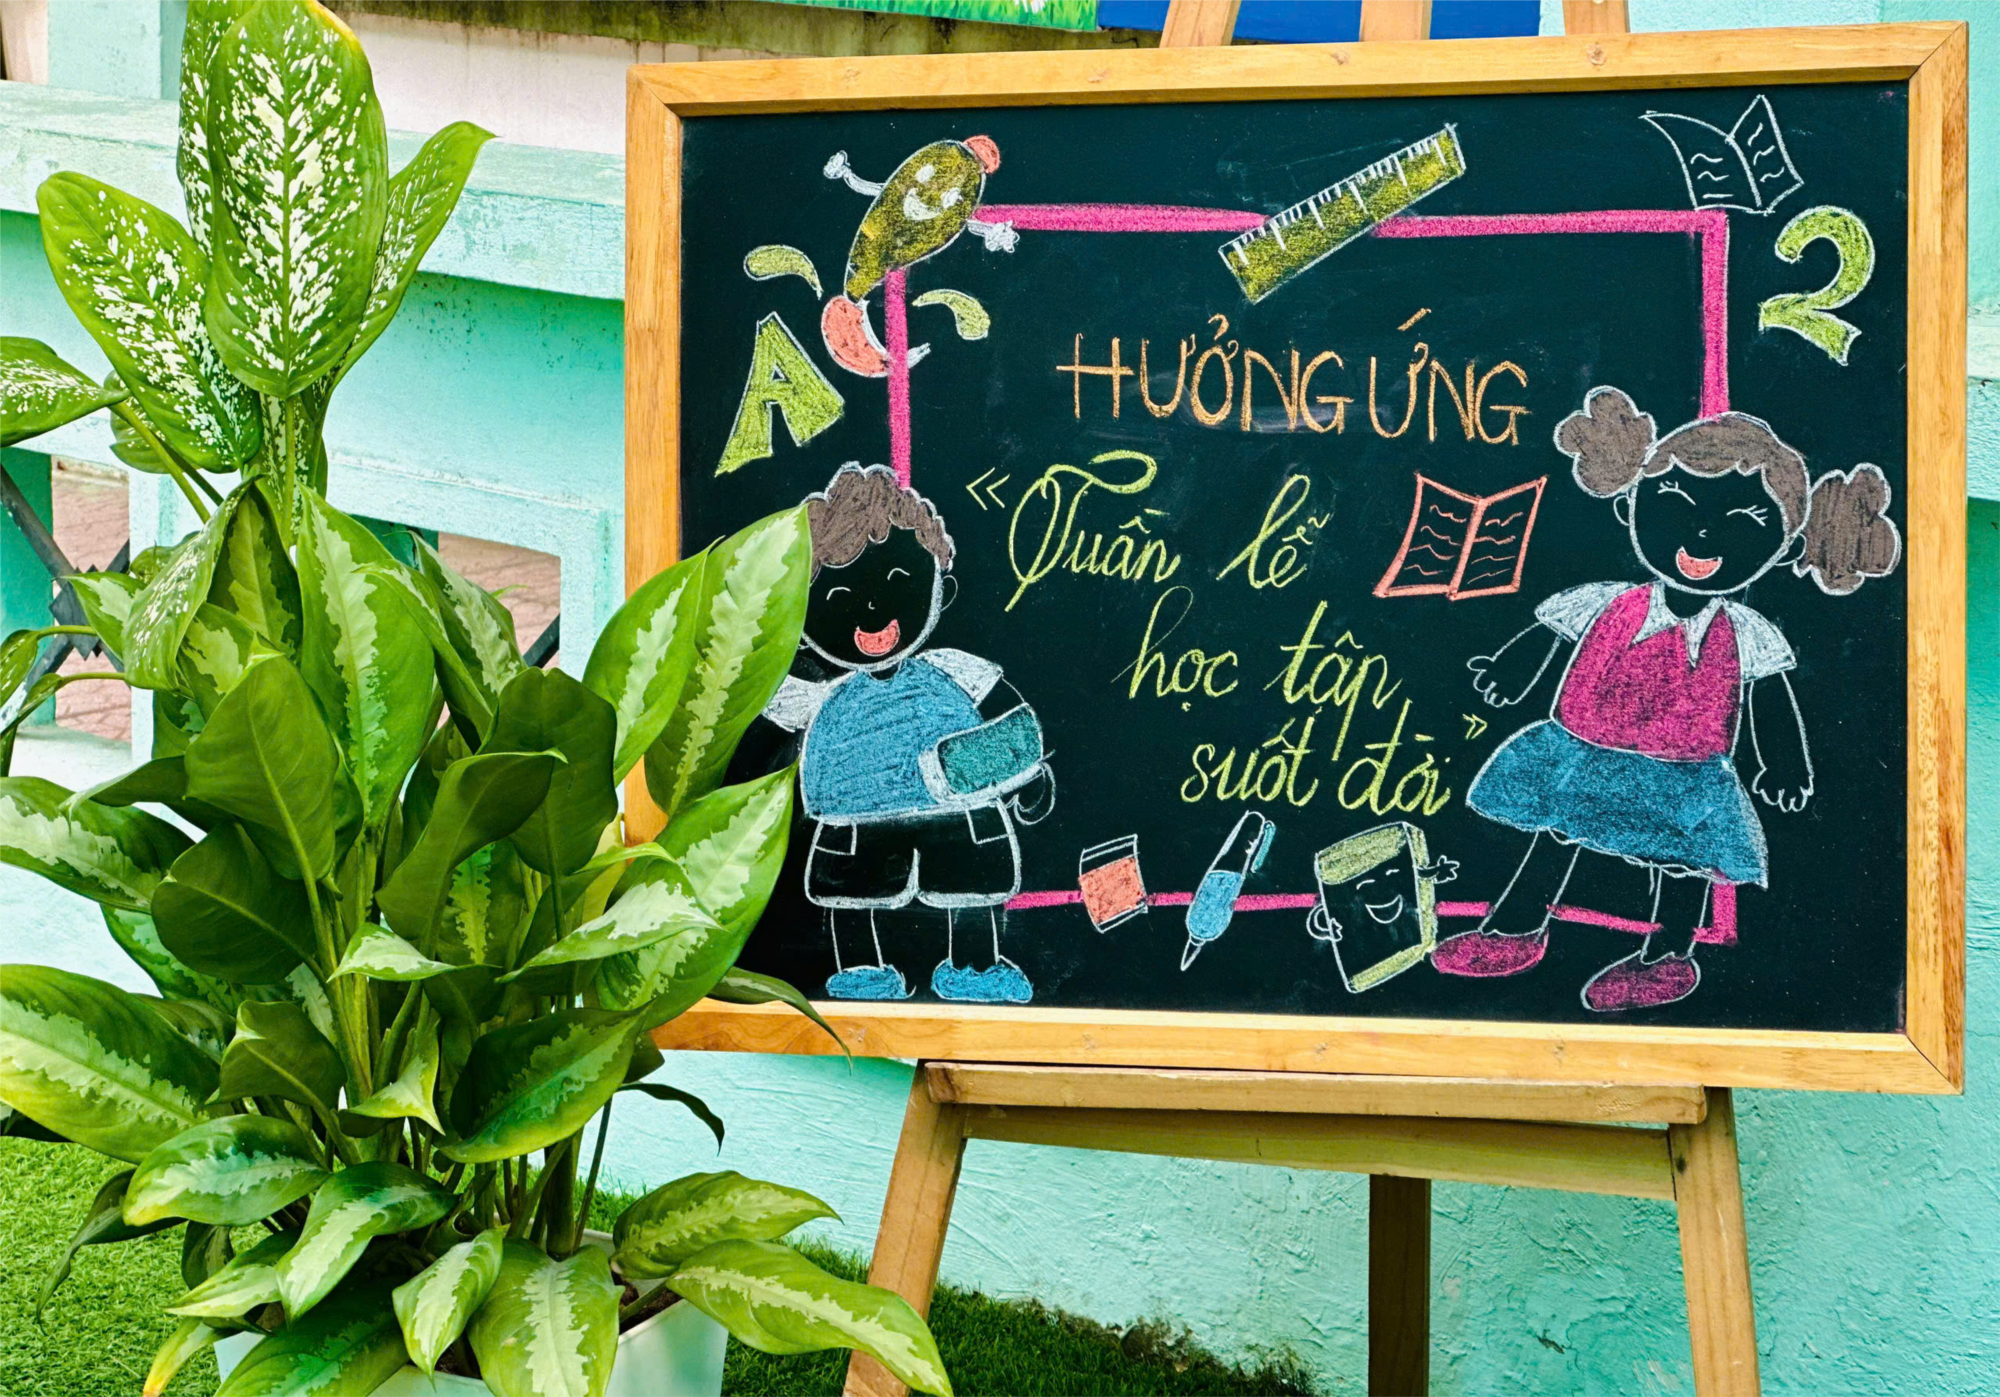 A
2
HƯỞNG ỨNG
"Tuần lễ
học tập
suốt đời"